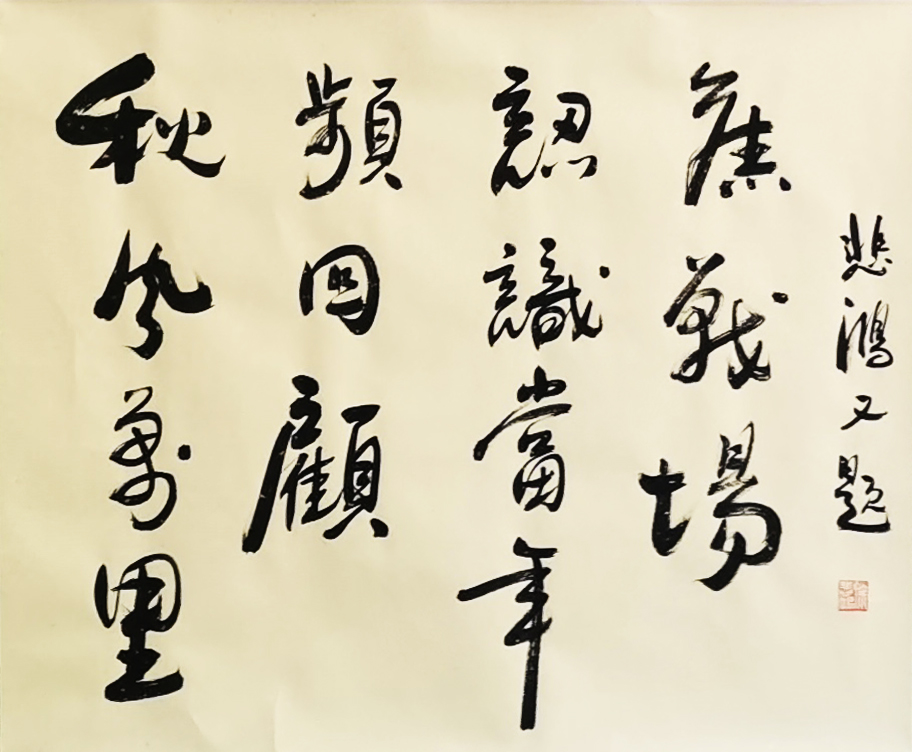 秋風萬里
頻回顧
認識當年
戰場
悲鴻又題